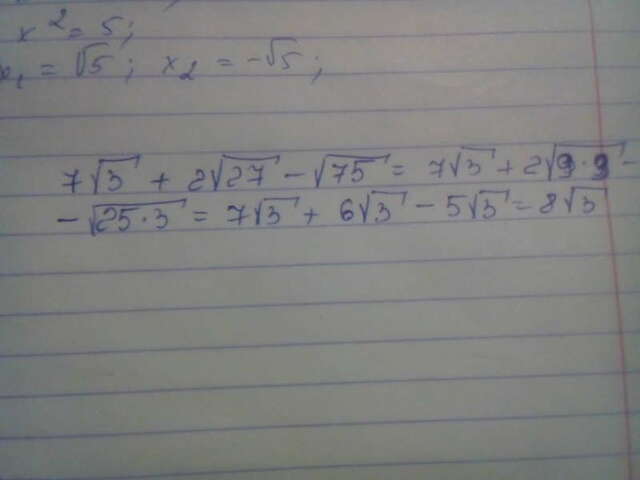 x² = 5;
x₁ = √5; x₂ = -√5;
7√3 + 2√27 - √75 = 7√3 + 2√9·9 -
- √25·3 = 7√3 + 6√3 - 5√3 = 8√3